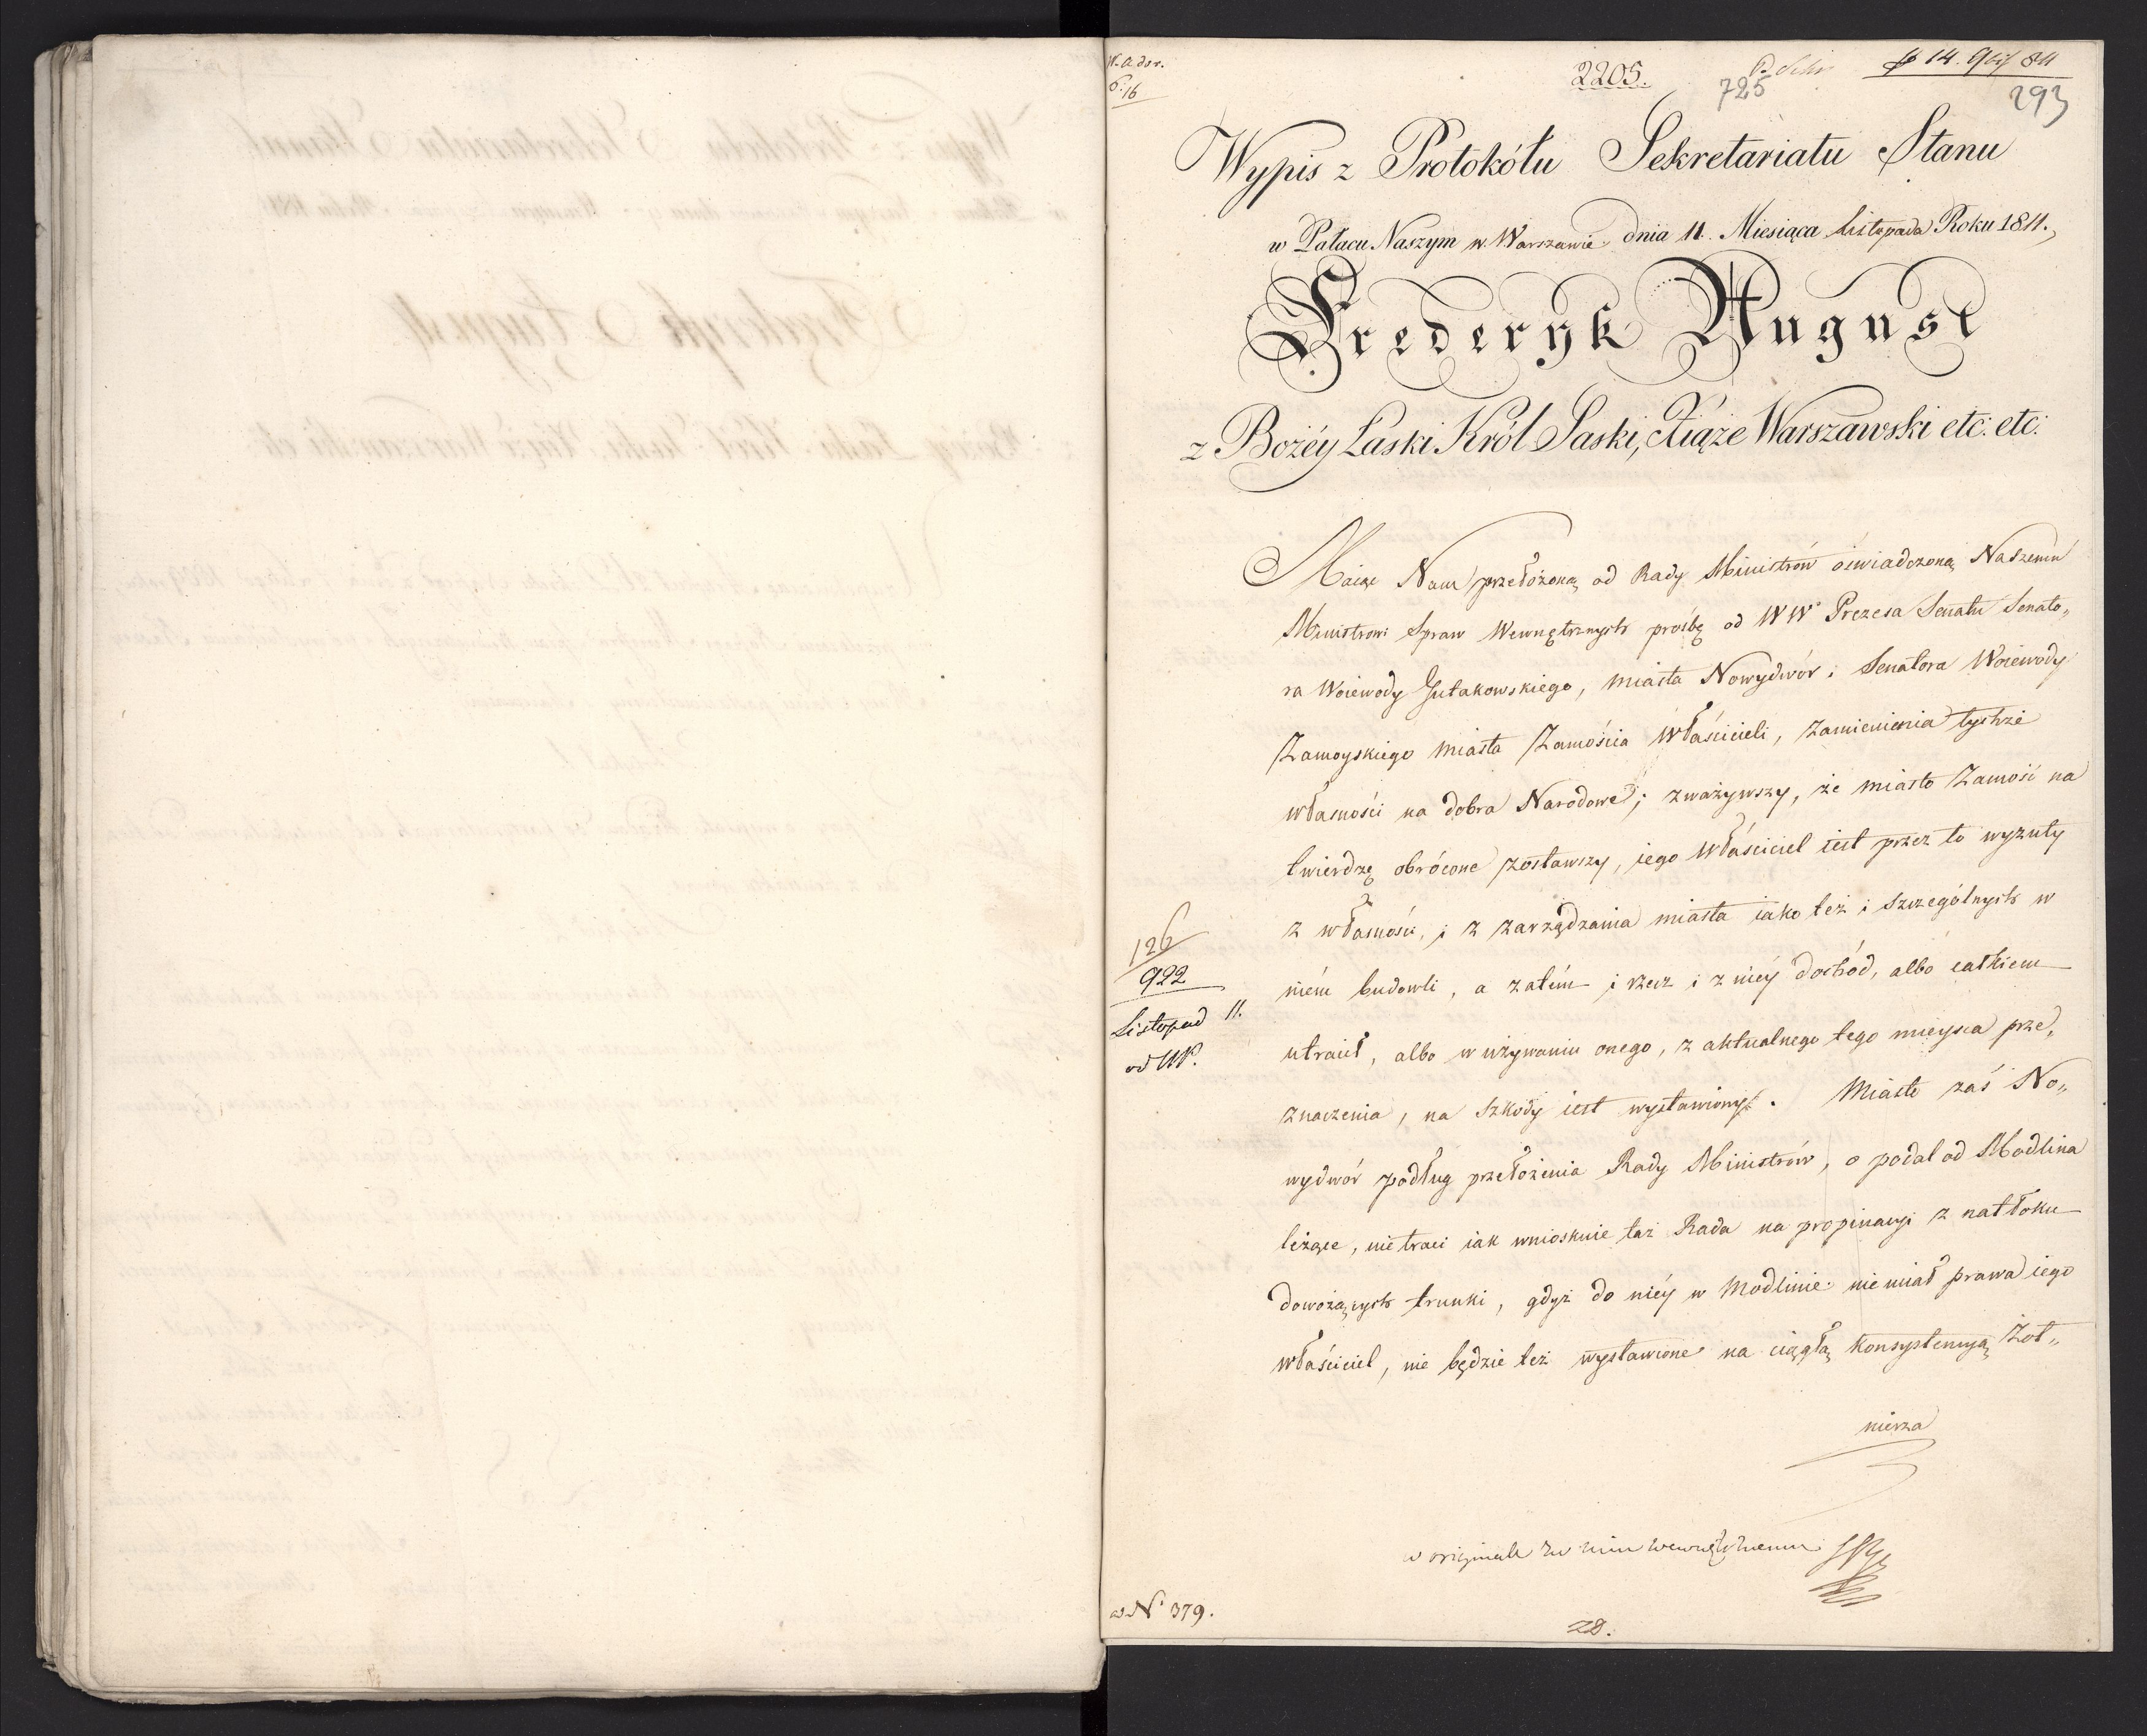 2205.
725
14. 9br 811
293
Wypis z Protokółu Sekretariatu Stanu
w Pałacu Naszym w Warszawie dnia 11. Miesiąca Listopada Roku 1811.
Frederyk August
z Bożéy Łaski Król Saski, Xiąże Warszawski etc: etc:
Maiąc Nam przełożoną od Rady Ministrów oświadczoną Naszemu
Ministrowi Spraw Wewnętrznych prośbę od WW Prezesa Senatu Senato„
ra Woiewody Gutakowskiego, miasta Nowydwór i Senatora Woiewody
Zamoyskiego miasta Zamościa właścicieli, zamienienia tychże
własności na dobra Narodowe; zważywszy, że miasto Zamość na
twierdzę obrócone zostawszy, iego właściciel iest przez to wyzuty
z własności, i z zarządzania miasta iako też i szczególnych w
niém budowli, a zatém i rzecz i z niéy dochód, albo całkiem
utracił, albo w używaniu onego, z aktualnego tego mieysca prze„
znaczenia, na szkody iest wystawiony. Miasto zaś No„
wydwór podług przełożenia Rady Ministrów, o podal od Modlina
leżące, nie traci iak wnioskuie taż Rada na propinacyi z natłoku
dowożących trunki, gdyż do niéy w Modlinie nie miał prawa iego
właściciel, nie będzie też wystawione na ciągłą konsystencyą żoł„
nierza
126
922
Listopad 11.
w originale
N 379.
28.